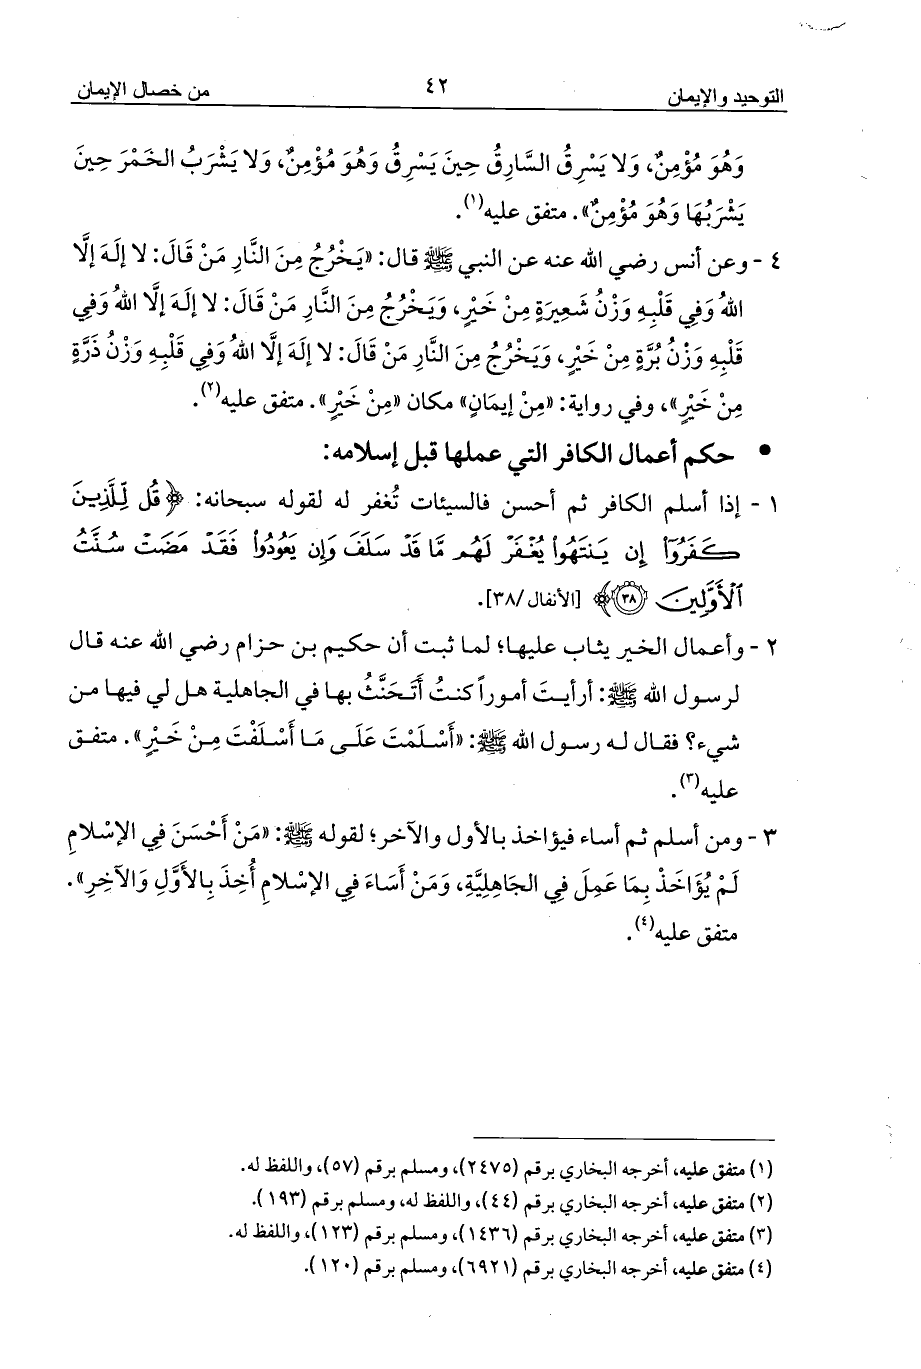 التوحيد والإيمان ٤٢ من خصال الإيمان
وَهُوَ مُؤْمِنٌ، وَلا يَسْرِقُ السَّارِقُ حِينَ يَسْرِقُ وَهُوَ مُؤْمِنٌ، وَلا يَشْرَبُ الخَمْرَ حِينَ
يَشْرَبُهَا وَهُوَ مُؤْمِنٌ». متفق عليه(١).
٤ - وعن أنس رضي الله عنه عن النبي ﷺ قال: «يَخْرُجُ مِنَ النَّارِ مَنْ قَالَ: لا إلَهَ إلَّا
اللهُ وَفِي قَلْبِهِ وَزْنُ شَعِيرَةٍ مِنْ خَيْرٍ، وَيَخْرُجُ مِنَ النَّارِ مَنْ قَالَ: لا إلَهَ إلَّا اللهُ وَفِي
قَلْبِهِ وَزْنُ بُرَّةٍ مِنْ خَيْرٍ، وَيَخْرُجُ مِنَ النَّارِ مَنْ قَالَ: لا إلَهَ إلَّا اللهُ وَفِي قَلْبِهِ وَزْنُ ذَرَّةٍ
مِنْ خَيْرٍ»، وفي رواية: «مِنْ إيمَانٍ» مكان «مِنْ خَيْرٍ». متفق عليه(٢).
• حكم أعمال الكافر التي عملها قبل إسلامه:
١ - إذا أسلم الكافر ثم أحسن فالسيئات تُغفر له لقوله سبحانه: ﴿قُل لِّلَّذِينَ
كَفَرُوٓاْ إِن يَنتَهُواْ يُغْفَرْ لَهُم مَّا قَدْ سَلَفَ وَإِن يَعُودُواْ فَقَدْ مَضَتْ سُنَّتُ
ٱلْأَوَّلِينَ ٣٨﴾ [الأنفال/٣٨].
٢ - وأعمال الخير يثاب عليها؛ لما ثبت أن حكيم بن حزام رضي الله عنه قال
لرسول الله ﷺ: أرأيتَ أموراً كنتُ أَتَحَنَّثُ بها في الجاهلية هل لي فيها من
شيء؟ فقال له رسول الله ﷺ: «أَسْلَمْتَ عَلَى مَا أَسْلَفْتَ مِنْ خَيْرٍ». متفق
عليه(٣).
٣ - ومن أسلم ثم أساء فيؤاخذ بالأول والآخر؛ لقوله ﷺ: «مَنْ أَحْسَنَ فِي الإسْلامِ
لَمْ يُؤَاخَذْ بِمَا عَمِلَ فِي الجَاهِلِيَّةِ، وَمَنْ أَسَاءَ فِي الإسْلامِ أُخِذَ بِالأَوَّلِ وَالآخِرِ».
متفق عليه(٤).
(١) متفق عليه، أخرجه البخاري برقم (٢٤٧٥)، ومسلم برقم (٥٧)، واللفظ له.
(٢) متفق عليه، أخرجه البخاري برقم (٤٤)، واللفظ له، ومسلم برقم (١٩٣).
(٣) متفق عليه، أخرجه البخاري برقم (١٤٣٦)، ومسلم برقم (١٢٣)، واللفظ له.
(٤) متفق عليه، أخرجه البخاري برقم (٦٩٢١)، ومسلم برقم (١٢٠).